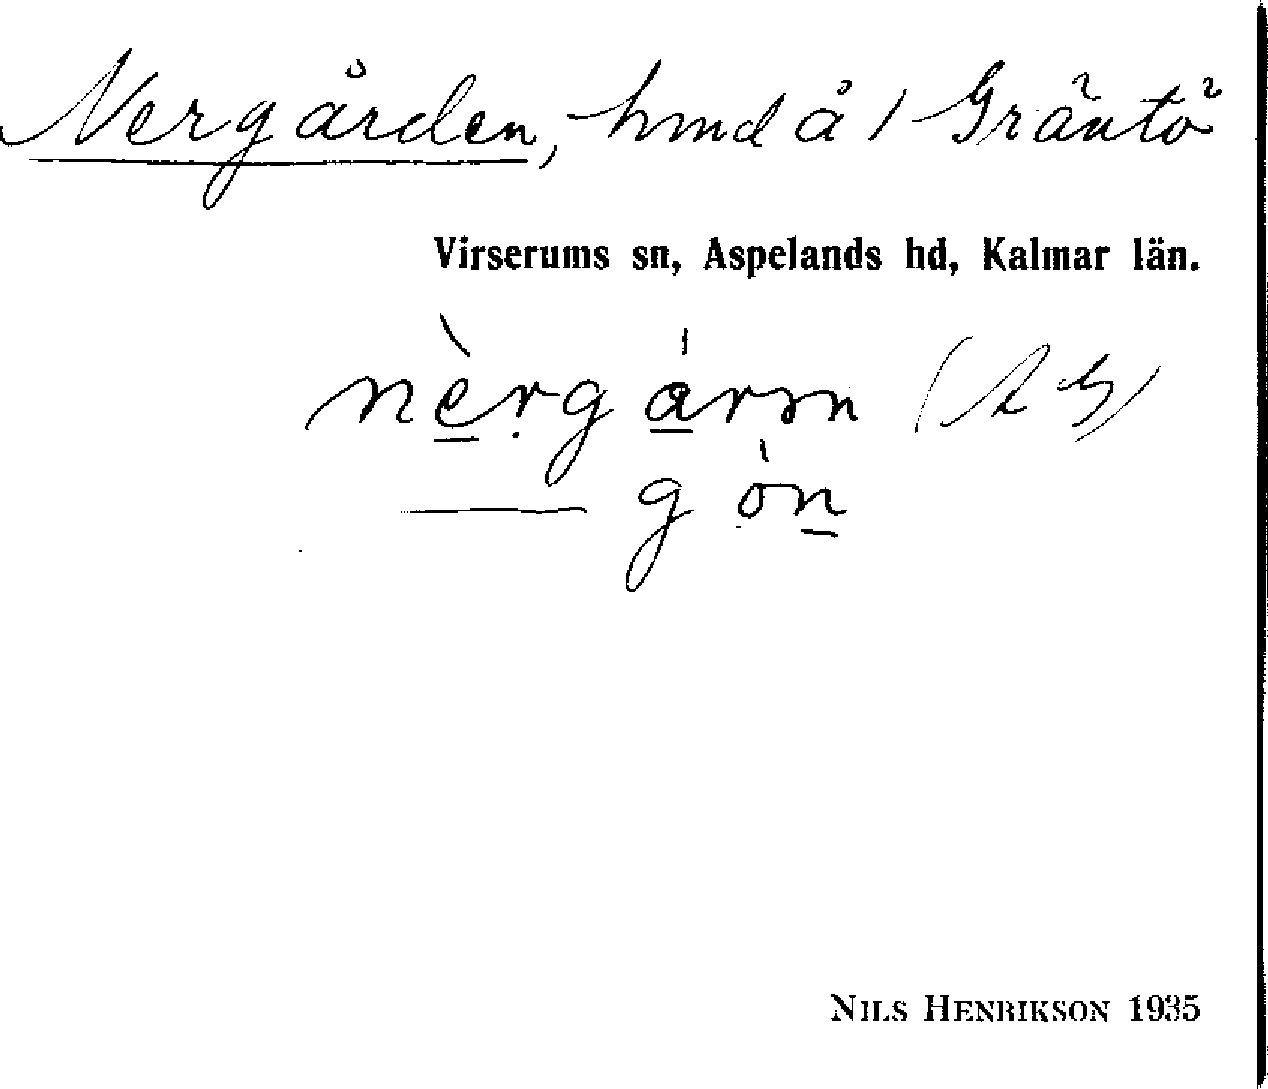 Nergården, hmd å 1 Gräntö
Virserums sn, Aspelands hd, Kalmar län.
nè̲ṛgá̲rən
g òn̲
NILS HENRIKSON 1935